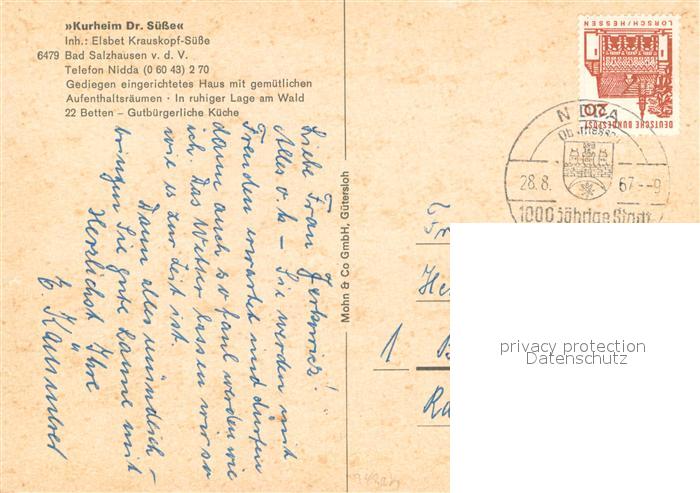 »Kurheim Dr. Süße«
Inh.: Elsbet Krauskopf-Süße
6479 Bad Salzhausen v. d. V.
Telefon Nidda (0 60 43) 2 70
Gediegen eingerichtetes Haus mit gemütlichen
Aufenthaltsräumen · In ruhiger Lage am Wald
22 Betten – Gutbürgerliche Küche
Liebe Frau
Alles o.k – Sie werden mit
Freuden erwartet und dürfen
dann auch so faul werden wie
ich. Das Wetter lassen wir so
wie es zur Zeit ist.
Dann alles mündlich –
bringen Sie gute Laune mit
Herzlichst Ihre
Mohn & Co GmbH, Gütersloh
LORSCH/HESSEN
20
DEUTSCHE BUNDESPOST
NIDDA
28.8. 67.--9
1000 jährige Stadt
1
privacy protection
Datenschutz